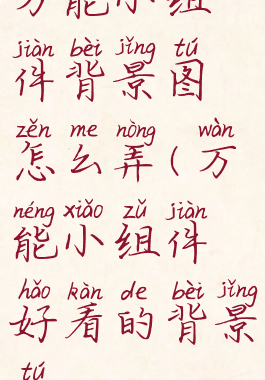 万能小组
jiàn bèi jǐng tú
件背景图
zěn me nòng wàn
怎么弄(万
néng xiǎo zǔ jiàn
能小组件
hǎo kàn de bèi jǐng
好看的背景
tú